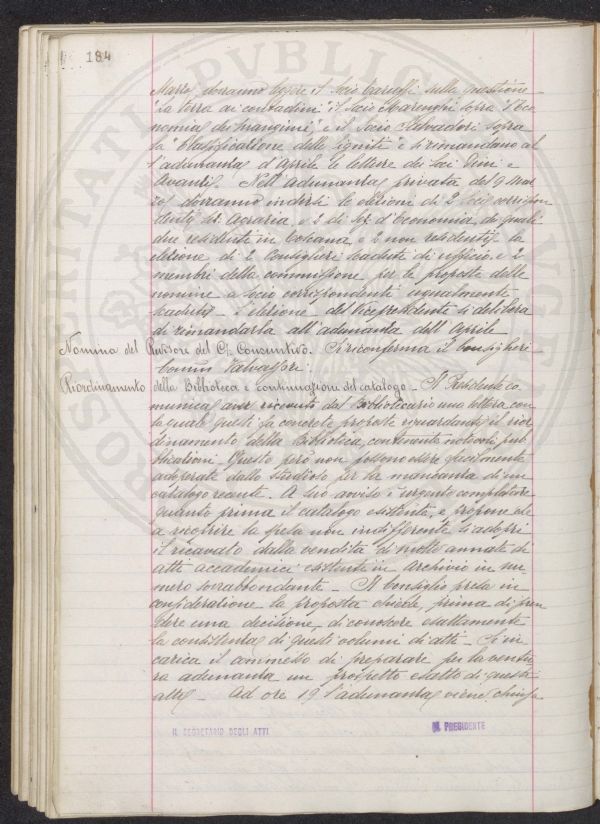 184
Marzo, dovranno leggere il Socio Caruffi sulla questione
"La terra ai contadini" il Socio Marenghi sopra "l'Eco
nomia dei mangimi", e il Socio Salvadori sopra
la "Classificazione delle ligniti" e si rimandano al
l'adunanza d'Aprile le letture dei soci Pini e
Avanzi. Nell'adunanza privata del 9 Mar
zo, dovranno indirsi le elezioni di 2 Soci corrispon
denti di Agraria, e 2 di Sez. d'Economia, dei quali
due residenti in Toscana, e 2 non residenti, la
elezione di 2 Consiglieri scaduti di ufficio, e 2
membri della commissione per le proposte delle
nomine a socio corrispondenti ugualmente
scaduti. L'elezione del Vicepresidente si delibera
di rimandarla all'adunanza dell'Aprile
Nomina del Revisore del C/ Consuntivo. Si riconferma il Consiglieri
Comm Valvassori.
Riordinamento della Biblioteca e continuazione del catalogo - Il Presidente co
munica aver ricevuto dal Bibliotecario una lettera con
la quale questi fa concrete proposte riguardanti il rior
dinamento della Biblioteca, contenente notevoli pub
blicazioni. Queste però non possono essere facilmente
adoperate dallo studioso per la mancanza di un
catalogo recente. A suo avviso è urgente completare
quanto prima il catalogo esistente, e propone che
a ricoprire la spesa non indifferente si adopri
il ricavato dalla vendita di molte annate di
atti accademici esistenti in archivio in nu
mero sovrabbondante - Il Consiglio presa in
considerazione la proposta chiede, prima di pren
dere una decisione, di conoscere esattamente
la consistenza di questi volumi di atti - Si in
carica il commesso di preparare per la ventu
ra adunanza un prospetto esatto di questi
atti - Ad ore 19 l'adunanza viene chiusa
IL SEGRETARIO DEGLI ATTI
IL PRESIDENTE